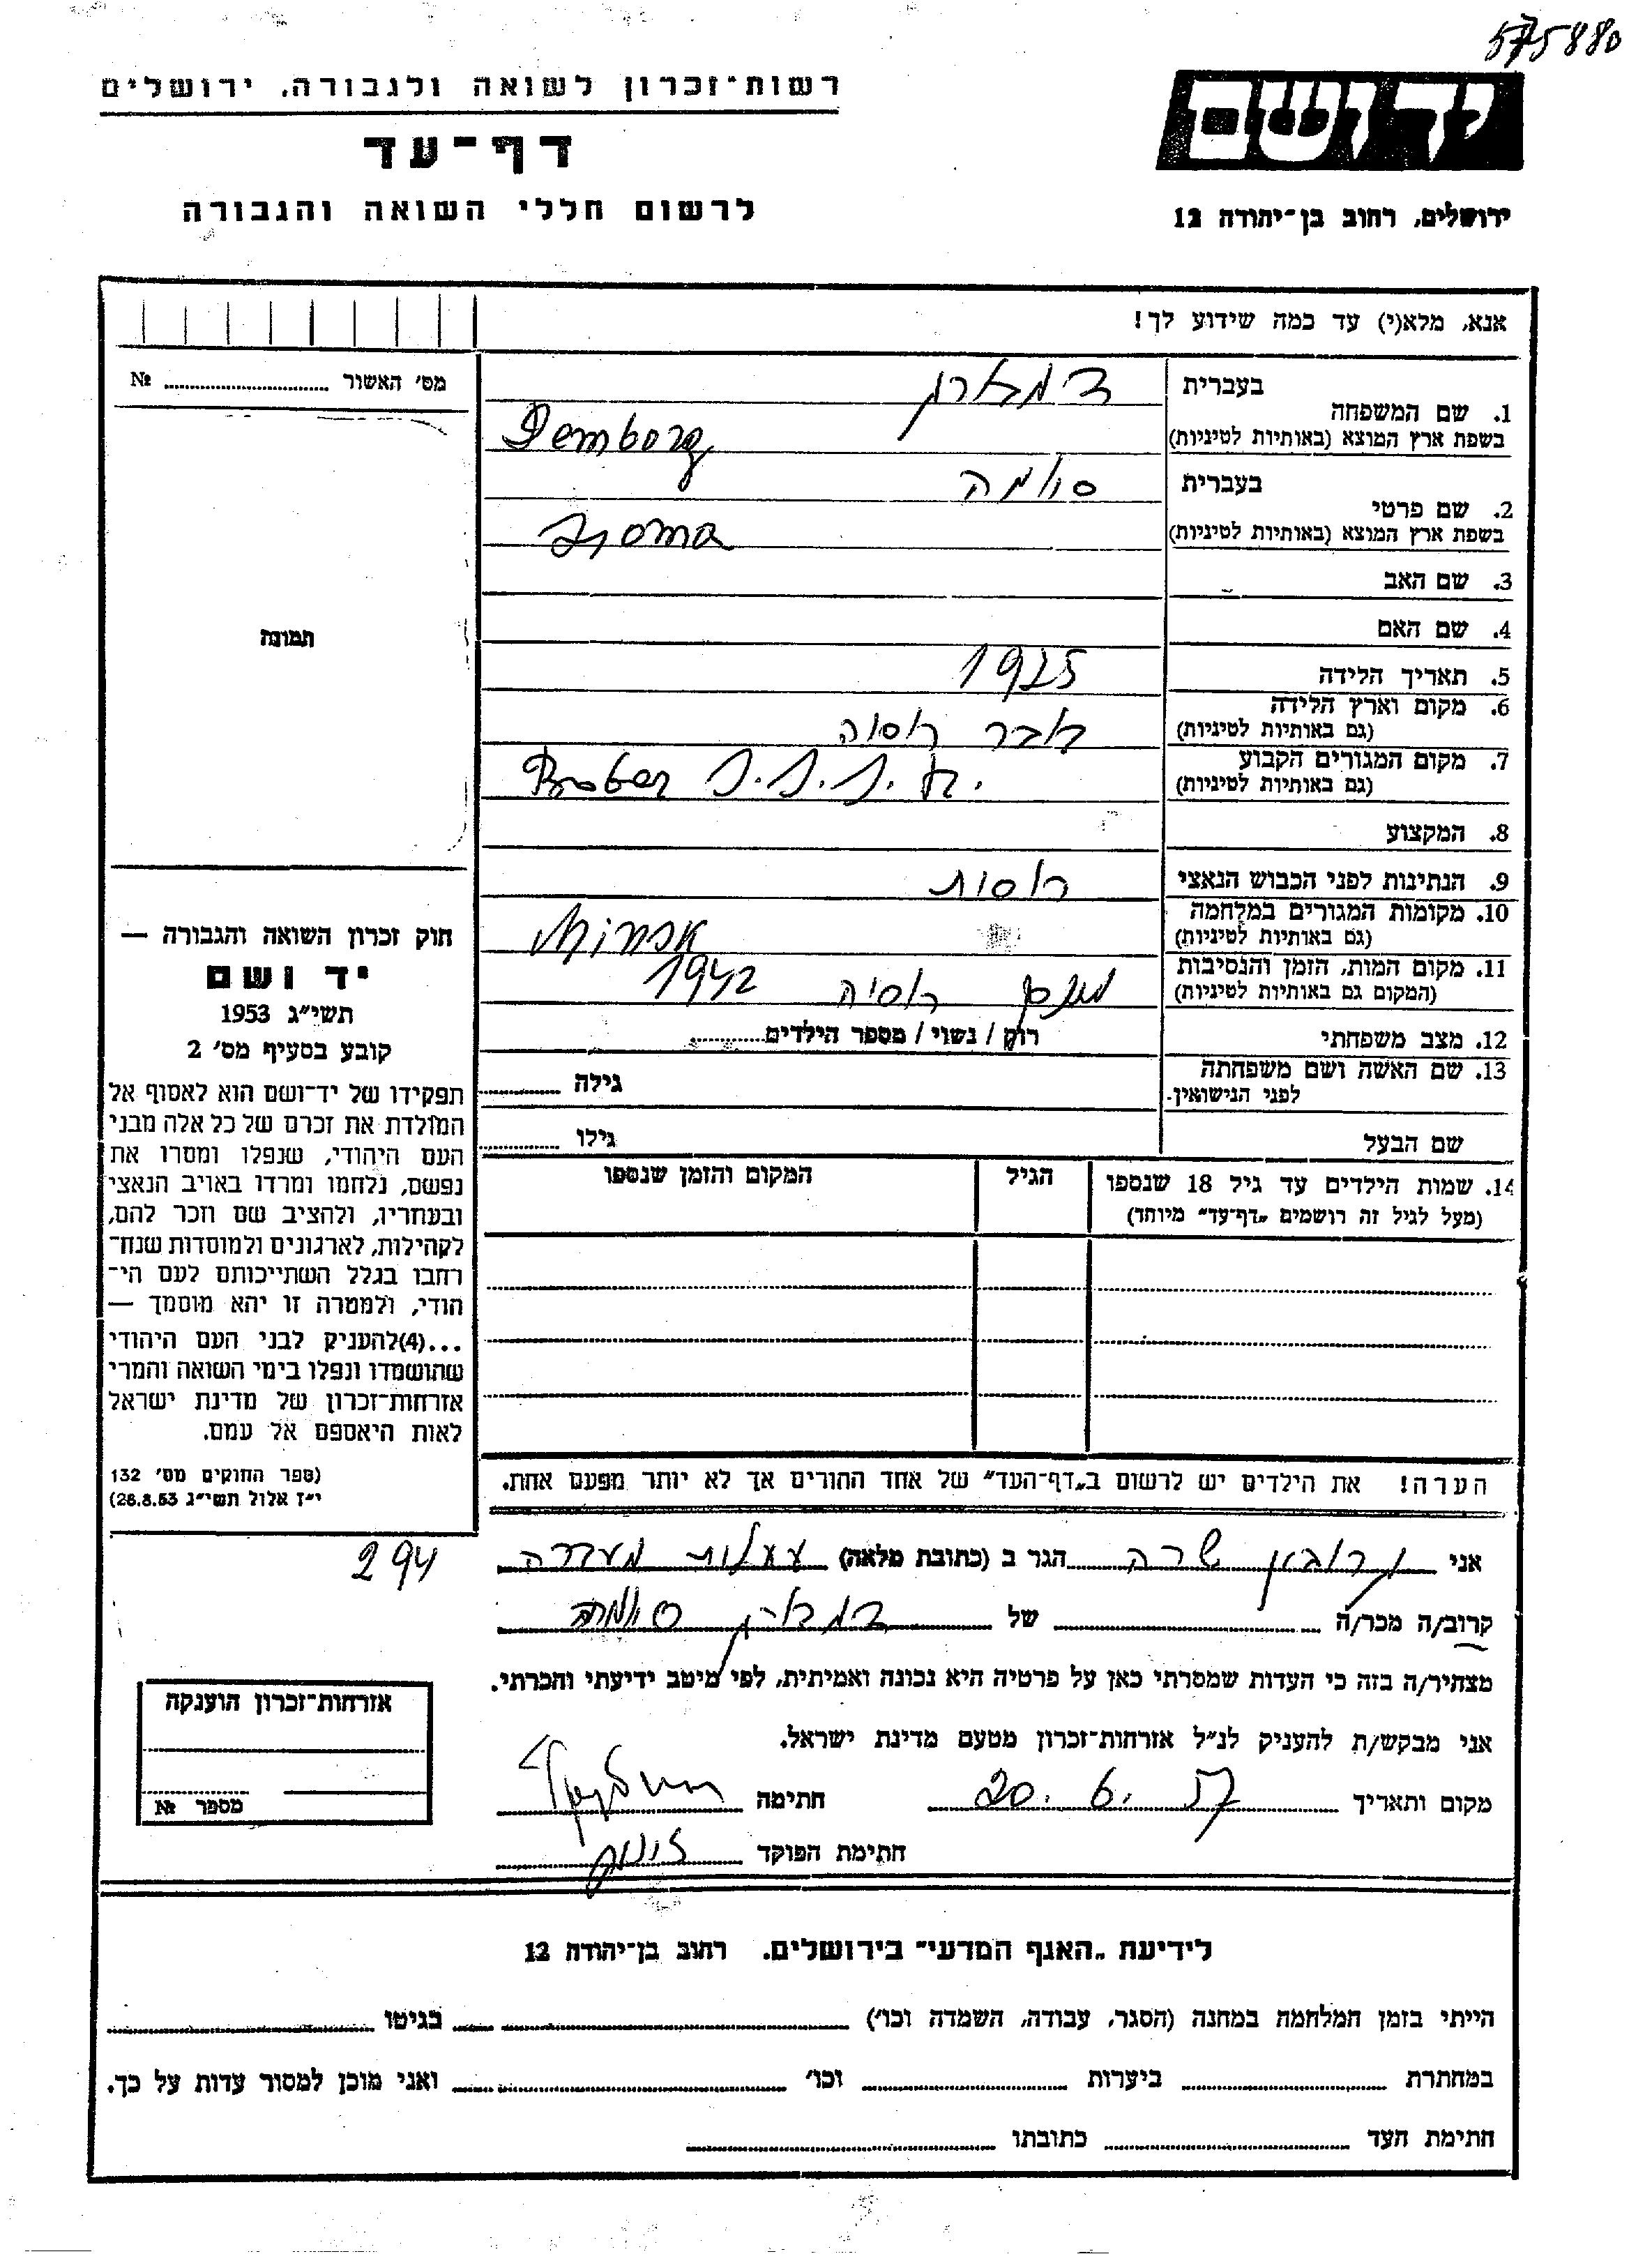 575880
רשות־זכרון לשואה ולגבורה, ירושלים
יד ושם
דף־עד
לרשום חללי השואה והגבורה
ירושלים, רחוב בן־יהודה 12
אנא, מלא(י) עד כמה שידוע לך!
מס׳ האשור № 
1. שם המשפחה
בעברית
בשפת ארץ המוצא (באותיות לטיניות)
Demborg
2. שם פרטי
בעברית
בשפת ארץ המוצא (באותיות לטיניות)
3. שם האב
4. שם האם
תמונה
5. תאריך הלידה 1925
6. מקום וארץ הלידה
(גם באותיות לטיניות)
7. מקום המגורים הקבוע
(גם באותיות לטיניות)
8. המקצוע
9. הנתינות לפני הכבוש הנאצי רוסית
10. מקומות המגורים במלחמה
(גם באותיות לטיניות)
11. מקום המות, הזמן והנסיבות
(המקום גם באותיות לטיניות)
מינסק רוסיה 1942
12. מצב משפחתי רוק / נשוי / מספר הילדים
13. שם האשה ושם משפחתה
לפני הנישואין גילה
שם הבעל גילו
14. שמות הילדים עד גיל 18 שנספו
(מעל לגיל זה רושמים „דף־עד״ מיוחד)
הגיל
המקום והזמן שנספו
הערה! את הילדים יש לרשום ב„דף־העד״ של אחד ההורים אך לא יותר מפעם אחת.
חוק זכרון השואה והגבורה —
יד ושם
תשי״ג 1953
קובע בסעיף מס׳ 2
תפקידו של יד־ושם הוא לאסוף אל
המולדת את זכרם של כל אלה מבני
העם היהודי, שנפלו ומסרו את
נפשם, נלחמו ומרדו באויב הנאצי
ובעוזריו, ולהציב שם וזכר להם,
לקהילות, לארגונים ולמוסדות שנח־
רחבו בגלל השתייכותם לעם הי־
הודי, ולמטרה זו יהא מוסמך —
...(4)להעניק לבני העם היהודי
שהושמדו ונפלו בימי השואה והמרי
אזרחות־זכרון של מדינת ישראל
לאות היאספם אל עמם.
(ספר החוקים מס׳ 132
י״ז אלול תשי״ג 26.8.53)
294
אני שרה הגר ב (כתובת מלאה)
קרוב/ה מכר/ה של
מצהיר/ה בזה כי העדות שמסרתי כאן על פרטיה היא נכונה ואמיתית, לפי מיטב ידיעתי והכרתי.
אני מבקש/ת להעניק לנ״ל אזרחות־זכרון מטעם מדינת ישראל.
מקום ותאריך 20. 6. 57 חתימה
חתימת הפוקד
אזרחות־זכרון הוענקה
מספר №
לידיעת „האגף המדעי״ בירושלים. רחוב בן־יהודה 12
הייתי בזמן המלחמה במחנה (הסגר, עבודה, השמדה וכו׳) בגיטו
במחתרת ביערות וכו׳ ואני מוכן למסור עדות על כך.
חתימת העד כתובתו